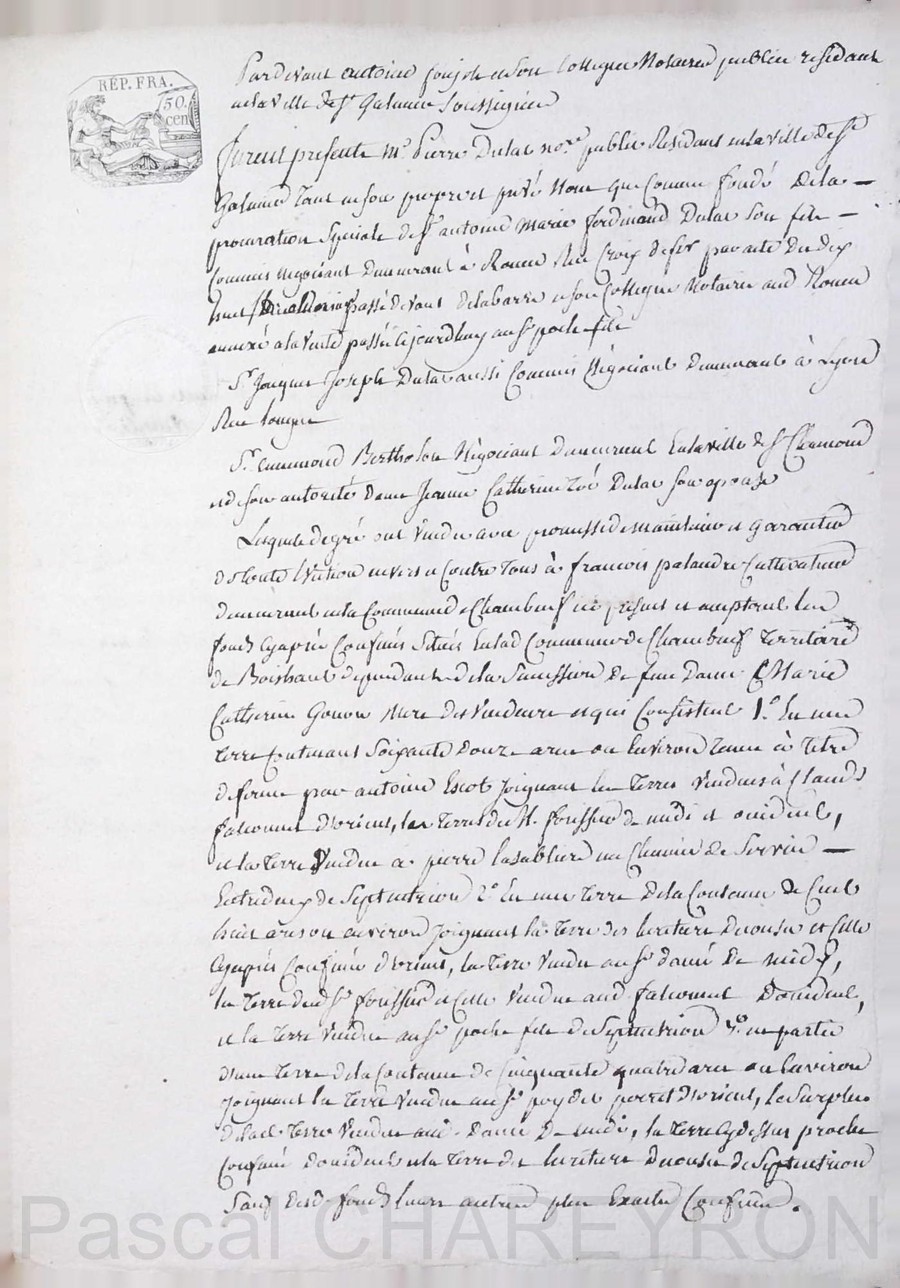 RÉP. FRA.
50.
cen
Pardevant antoine et son Collegue Notaires publics residant
en la ville de St Galmier Soussignés
furent presents Mr Pierre Dulac nore public Residant en la ville de St
Galmier Tant en son propre et privé Nom que Comme fondé de la
procuration Speciale de Sr antoine Marie ferdinand Dulac Son fils
Commis Negociant demeurant à Rouen Rue Croix de fer par acte du dix
huit passé devant delabarre et son Collegue Notaires aud Rouen
annexé a la vente passée cejourdhuy au Sr poche fils
Sr Joseph Dulac aussi Commis Négociant demeurant à Lyon
Rue
Sr Bertholon Négociant demeurant En la ville de St Chamond
et de son autorité dame Jeanne Catherine Zoé Dulac son epouse
Lesquels de gré ont vendu avec promesse de maintenir et garantir
de toute Eviction envers et Contre Tous à francois palandre Cultivateur
demeurant en la Commune de Chambeuf ici présent et acceptant les
fonds cyaprès Confinés Situés En lad Commune de Chambeuf Territoire
de dependants de la Succession de feue Dame Marie
Catherine Mere des vendeurs et qui Consistent 1.º En une
Terre Contenant Soixante douze ares ou Environ Tenue à Titre
de ferme par antoine Escot Joignant les Terres vendues à Claude
falconnet d'orient, les Terres du St. de midi et occident,
et la Terre vendue a pierre un Chemin de Service
Entredeux de Septentrion 2º En une Terre De la Contenue de Cent
huit ares ou environ Joignant la Terre des heritiers et Celle
Cyaprès Confinée d'orient, la Terre vendue au Sr damé De midy,
la Terre dud Sr et Celle vendue aud falconnet Doccident,
et la Terre vendue au Sr poche fils de Septentrion 3º une partie
d'une Terre de la Contenue de Cinquante quatre ares ou Environ
Joignant la Terre vendue au Sr d'orient, Le Surplus
de lad Terre vendue aud. damé De midi, la Terre Cydessus proche
Confinée Doccident et la Terre des heritiers de Septentrion
Sauf desd. fonds leurs autres plus Exacts Confins.
Pascal CHAREYRON